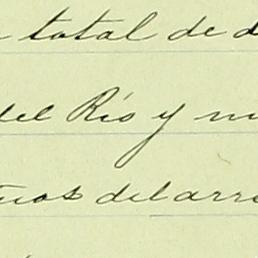 total de
del Rio y
del arro